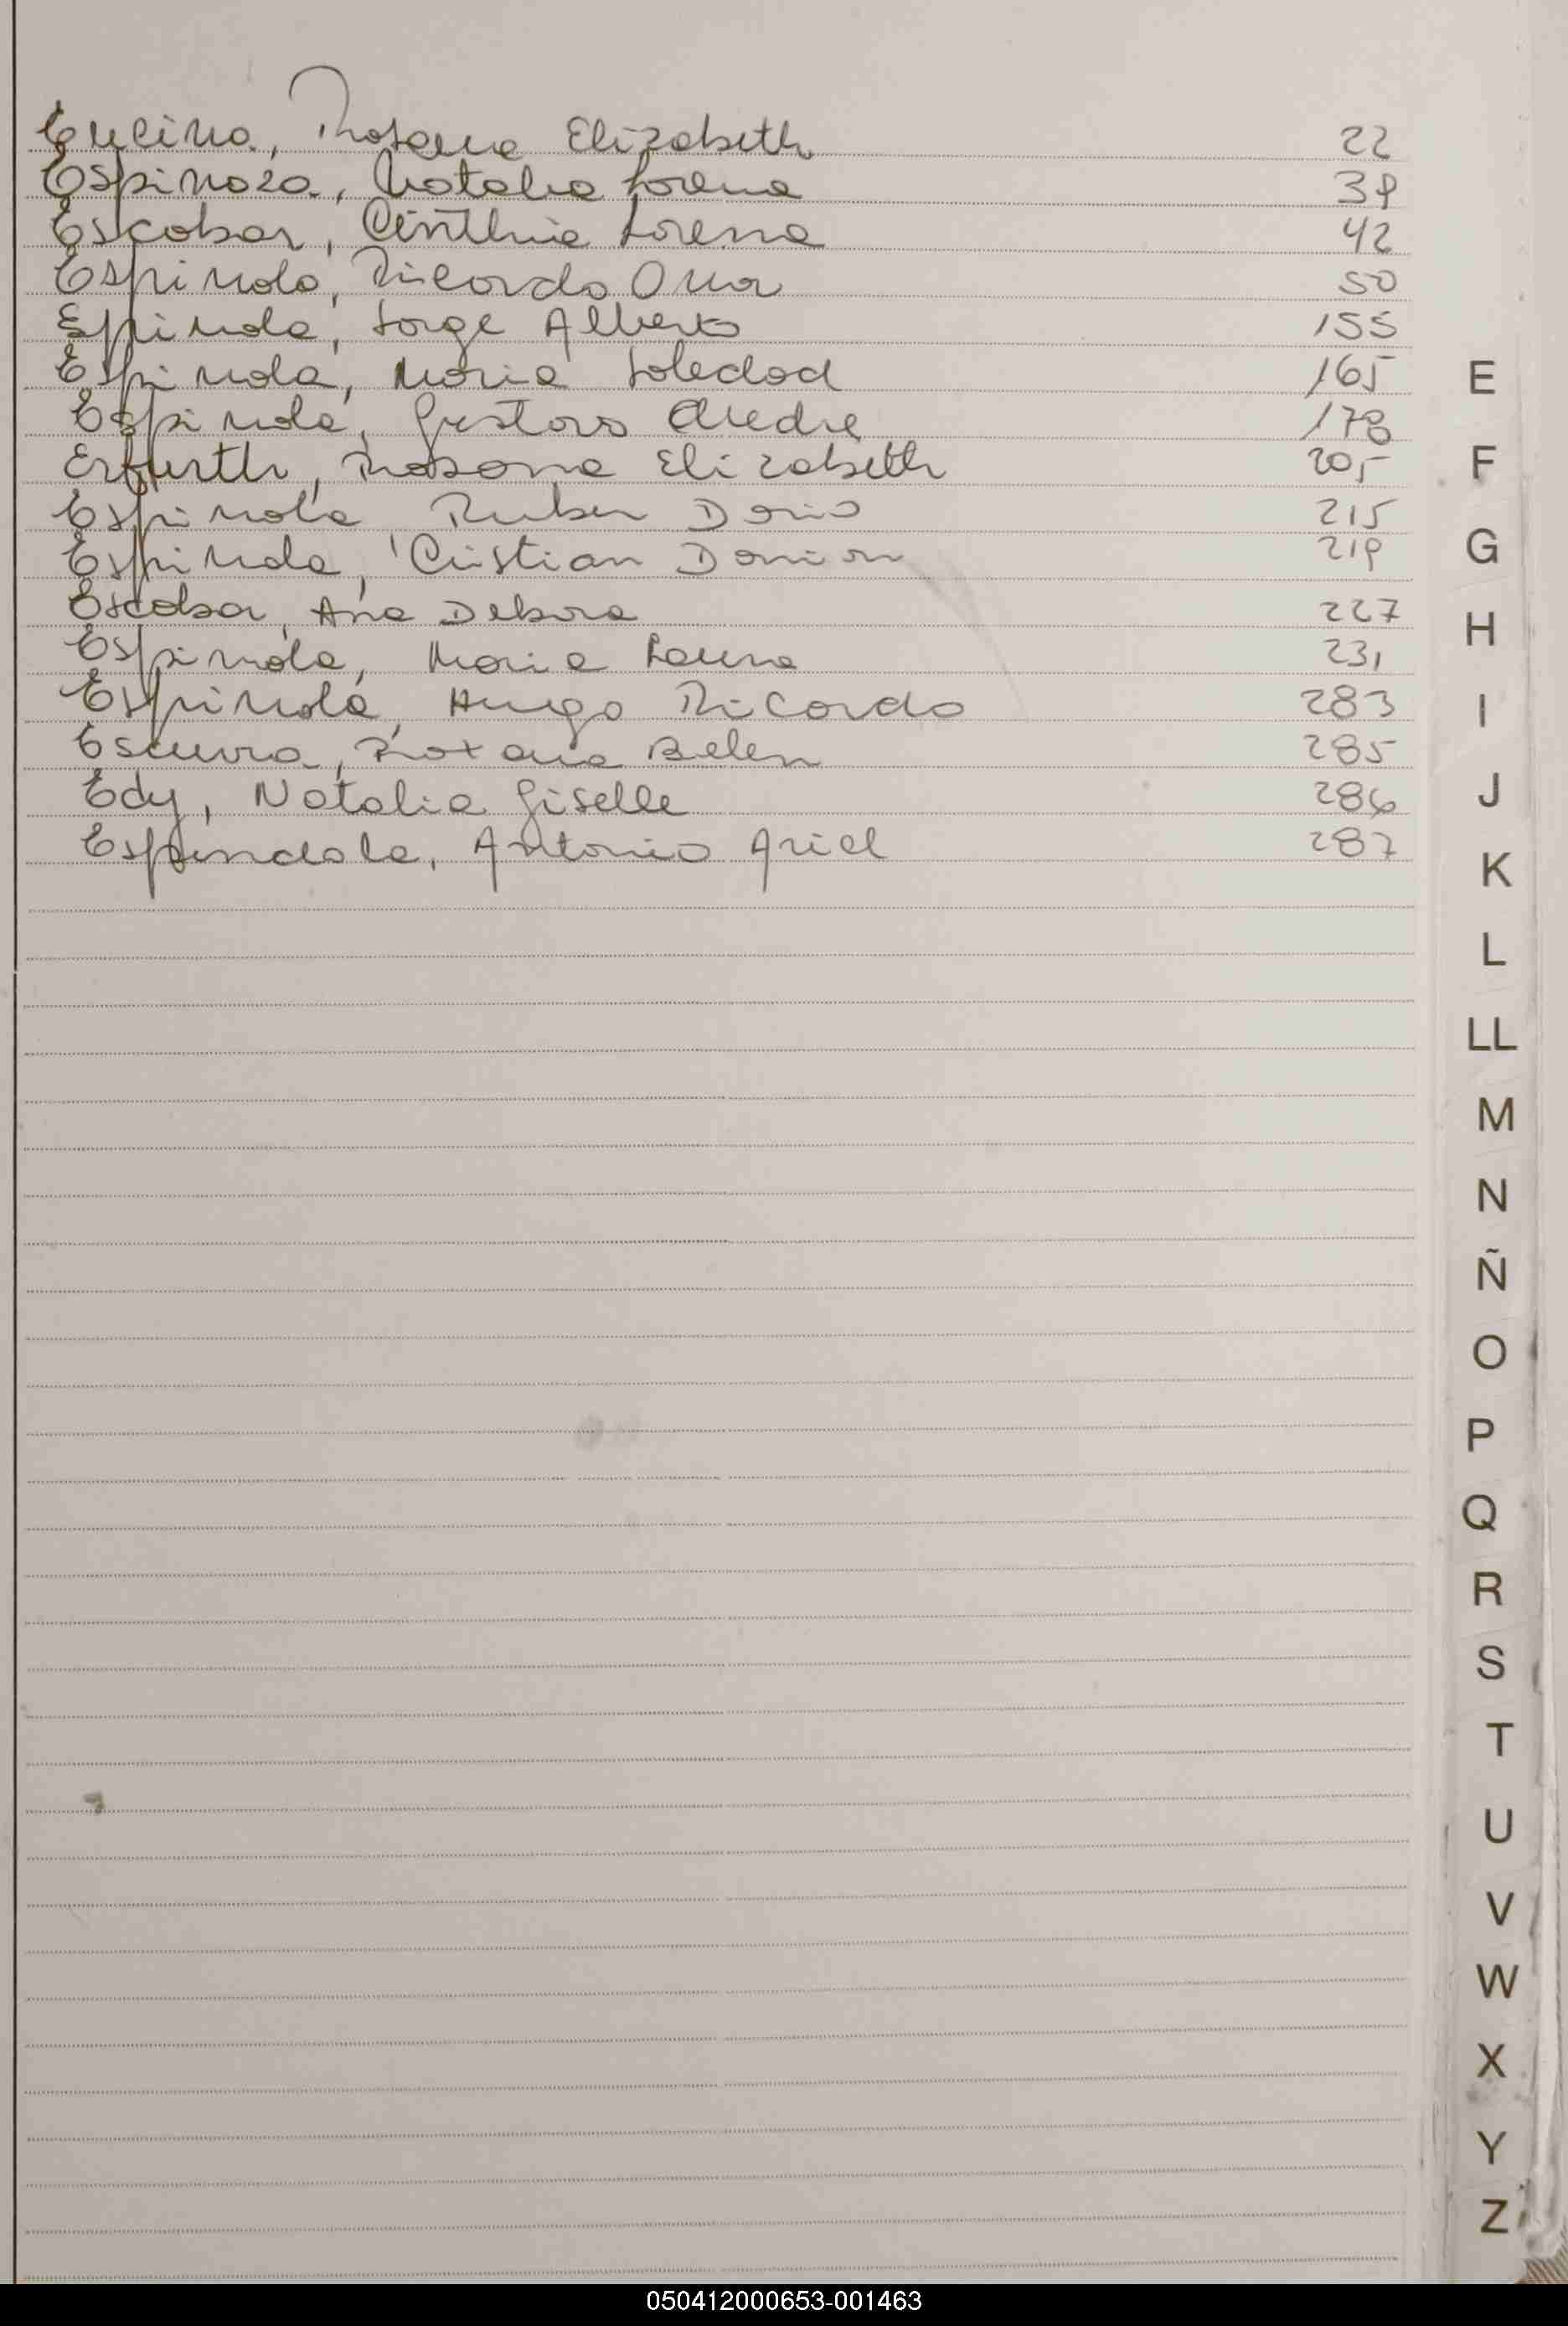 Encina, Rosana Elizabeth 22
Espinoza, Natalia Lorena 39
Escobar, Cinthia Lorena 42
Espinola, Ricardo Omar 50
Espinola, Jorge Alberto 155
Espinola, Maria Soledad 165
Espinola, Gustavo Andre 178
Erfurth, Rosana Elizabeth 205
Espinola Ruben Dario 215
Espinola, Cristian Damian 219
Escobar, Ana Debora 227
Espinola, Maria Laura 231
Espinola, Hugo Ricardo 283
Escurra, Roxana Belen 285
Edy, Natalia Giselle 286
Espindola, Antonio Ariel 287
E
F
G
H
I
J
K
L
LL
M
N
Ñ
O
P
Q
R
S
T
U
V
W
X
Y
Z
050412000653-001463